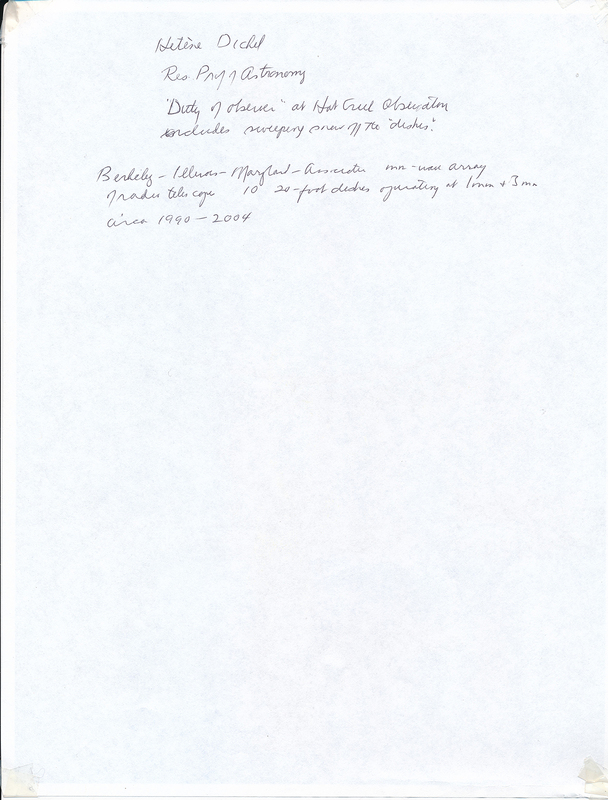 Helène Dickel
Res. Prof of Astronomy
"Duty of observer" at Hat Creek Observatory
includes sweeping snow off the "dishes".
Berkeley - Illinois - Maryland - Association mm-wave array
of radio telescope 10 20-foot dishes operating at 1mm & 3mm
circa 1990 - 2004